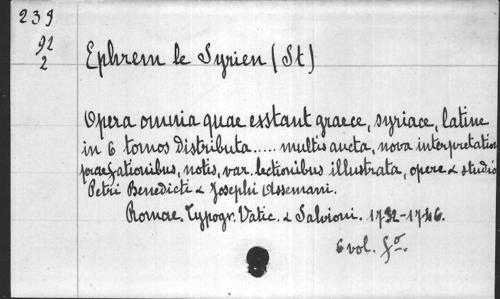 239
92
2
Ephrem le Syrien (St)
Opera omnia quae exstant graece, syriace, latine
in 6 tomos distributa..... multis aucta, nova interpretation
praefationibus, notis, var. lectionibus illustrata, opere & studio
Petri Benedicti & Josephi Assemani.
Romae. Typogr. Vatic. & Salvioni. 1732-1746.
6 vol. fo.